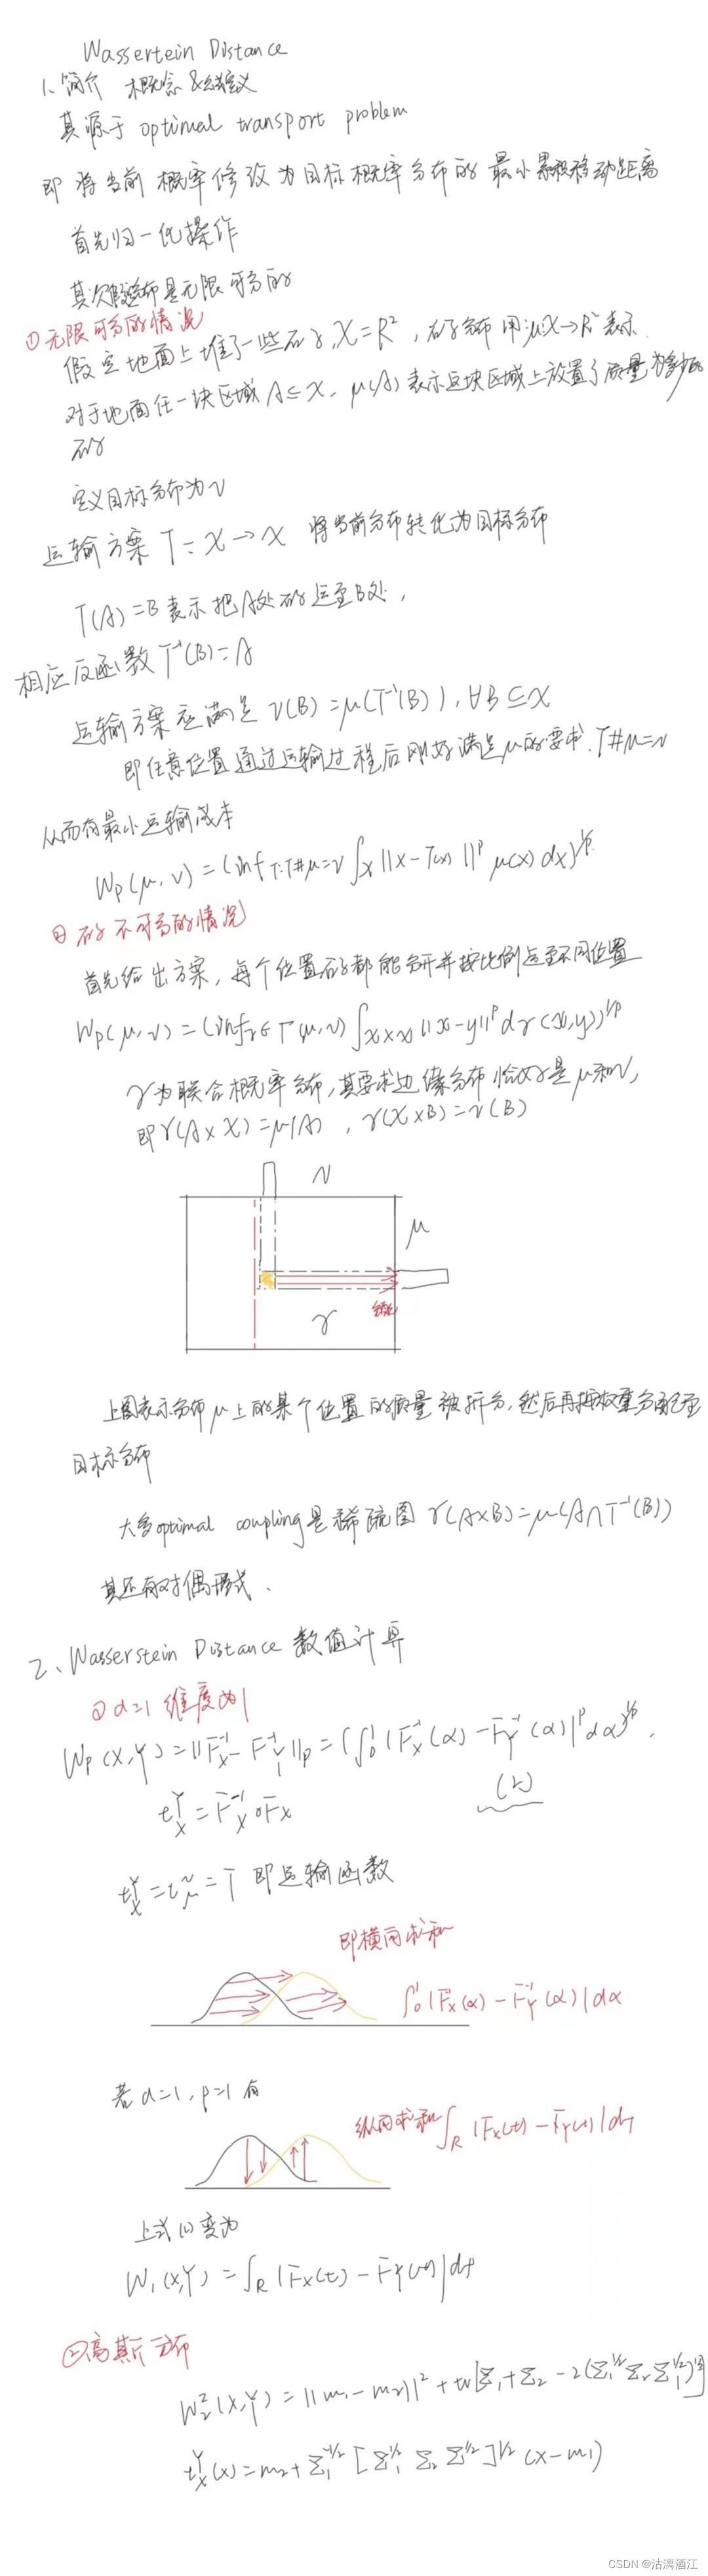 Wassertein Distance
1、简介 概念&定义
其源于 optimal transport problem
即 将当前 概率修改为目标概率分布的 最小累积移动距离
首先归一化操作
其次假定分布是无限可分的
①无限可分的情况
假定地面上堆了一些石子,X=R²,石子分布用μ:X→R⁺表示.
对于地面任一块区域A⊆X,μ(A)表示这块区域上放置了质量为多少的
石子
定义目标分布为ν
运输方案 T=X→X 将当前分布转化为目标分布
T(A)=B表示把A处石子运至B处,
相应反函数T⁻¹(B)=A
运输方案应满足 ν(B)=μ(T⁻¹(B)),∀B⊆X
即任意位置通过运输过程后刚好满足μ的要求.T#μ=ν
从而有最小运输成本
Wp(μ,ν)=(inf T:T#μ=ν ∫x ||x-T(x)||ᵖ μ(x)dx)^1/p
②石子不可分的情况
首先给出方案,每个位置石子都能分开并按比例运至不同位置
Wp(μ,ν)=(inf γ∈Γ(μ,ν) ∫X×X ||x-y||ᵖ dγ(x,y))^1/p
γ为联合概率分布,其要求边缘分布恰好是μ和ν,
即γ(A×X)=μ(A),γ(X×B)=ν(B)
ν
μ
γ
上图表示分布μ上的某个位置的质量被拆分,然后再按权重分配至
目标分布
大多optimal coupling是稀疏图 γ(A×B)=μ(A∩T⁻¹(B))
其还有对偶形式、
2、Wasserstein Distance 数值计算
①d=1 维度为1
Wp(X,Y)=||Fx⁻¹-Fy⁻¹||p=(∫₀¹|Fx⁻¹(α)-Fy⁻¹(α)|ᵖdα)^1/p.
t_X^Y=F_X⁻¹∘Fx
t_X^Y=t_μ^ν=T 即运输函数
即横向求和
∫₀¹|Fx⁻¹(α)-Fy⁻¹(α)|dα
若d=1,p=1有
纵向求和∫R|Fx(t)-Fy(t)|dt
上式(1)变为
W₁(X,Y)=∫R|Fx(t)-Fy(t)|dt
②高斯分布
W₂²(X,Y)=||m₁-m₂||²+tr[Σ₁+Σ₂-2(Σ₁^1/2Σ₂Σ₁^1/2)^1/2]
t_X^Y(x)=m₂+Σ₁^-1/2[Σ₁^1/2 Σ₂ Σ^1/2]^1/2(x-m₁)
CSDN @沽漓酒江